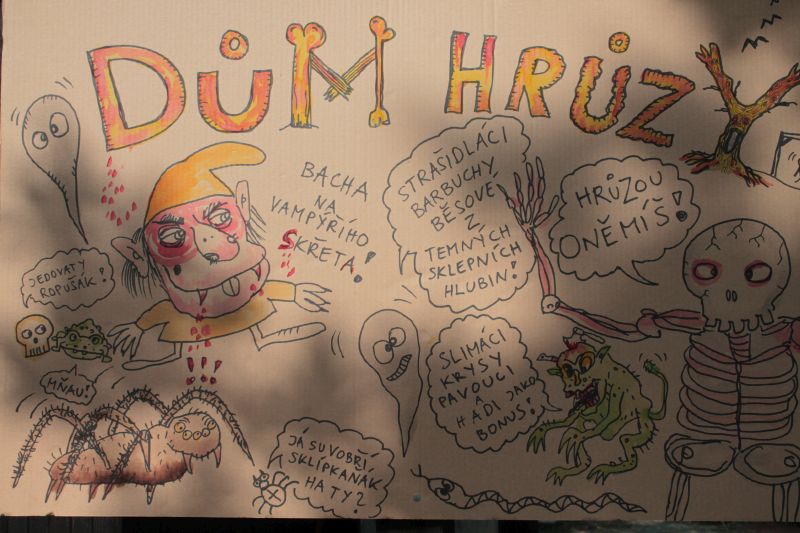 DŮM HRŮZY
BACHA
NA
VAMPÝŘÍHO
SKŘETA!
STRAŠIDLÁCI
BARBUCHY
BĚSOVÉ
Z
TEMNÝCH
SKLEPNÍCH
HLUBIN!
HRŮZOU
ONĚMÍŠ!
JEDOVATÝ
ROPUŠÁK!
MŇAU!
SLIMÁCI
KRYSY
PAVOUCI
A
HADI JAKO
BONUS!
JÁ SU VOBŘÍ
SKLÍPKANÁK
HA TY?